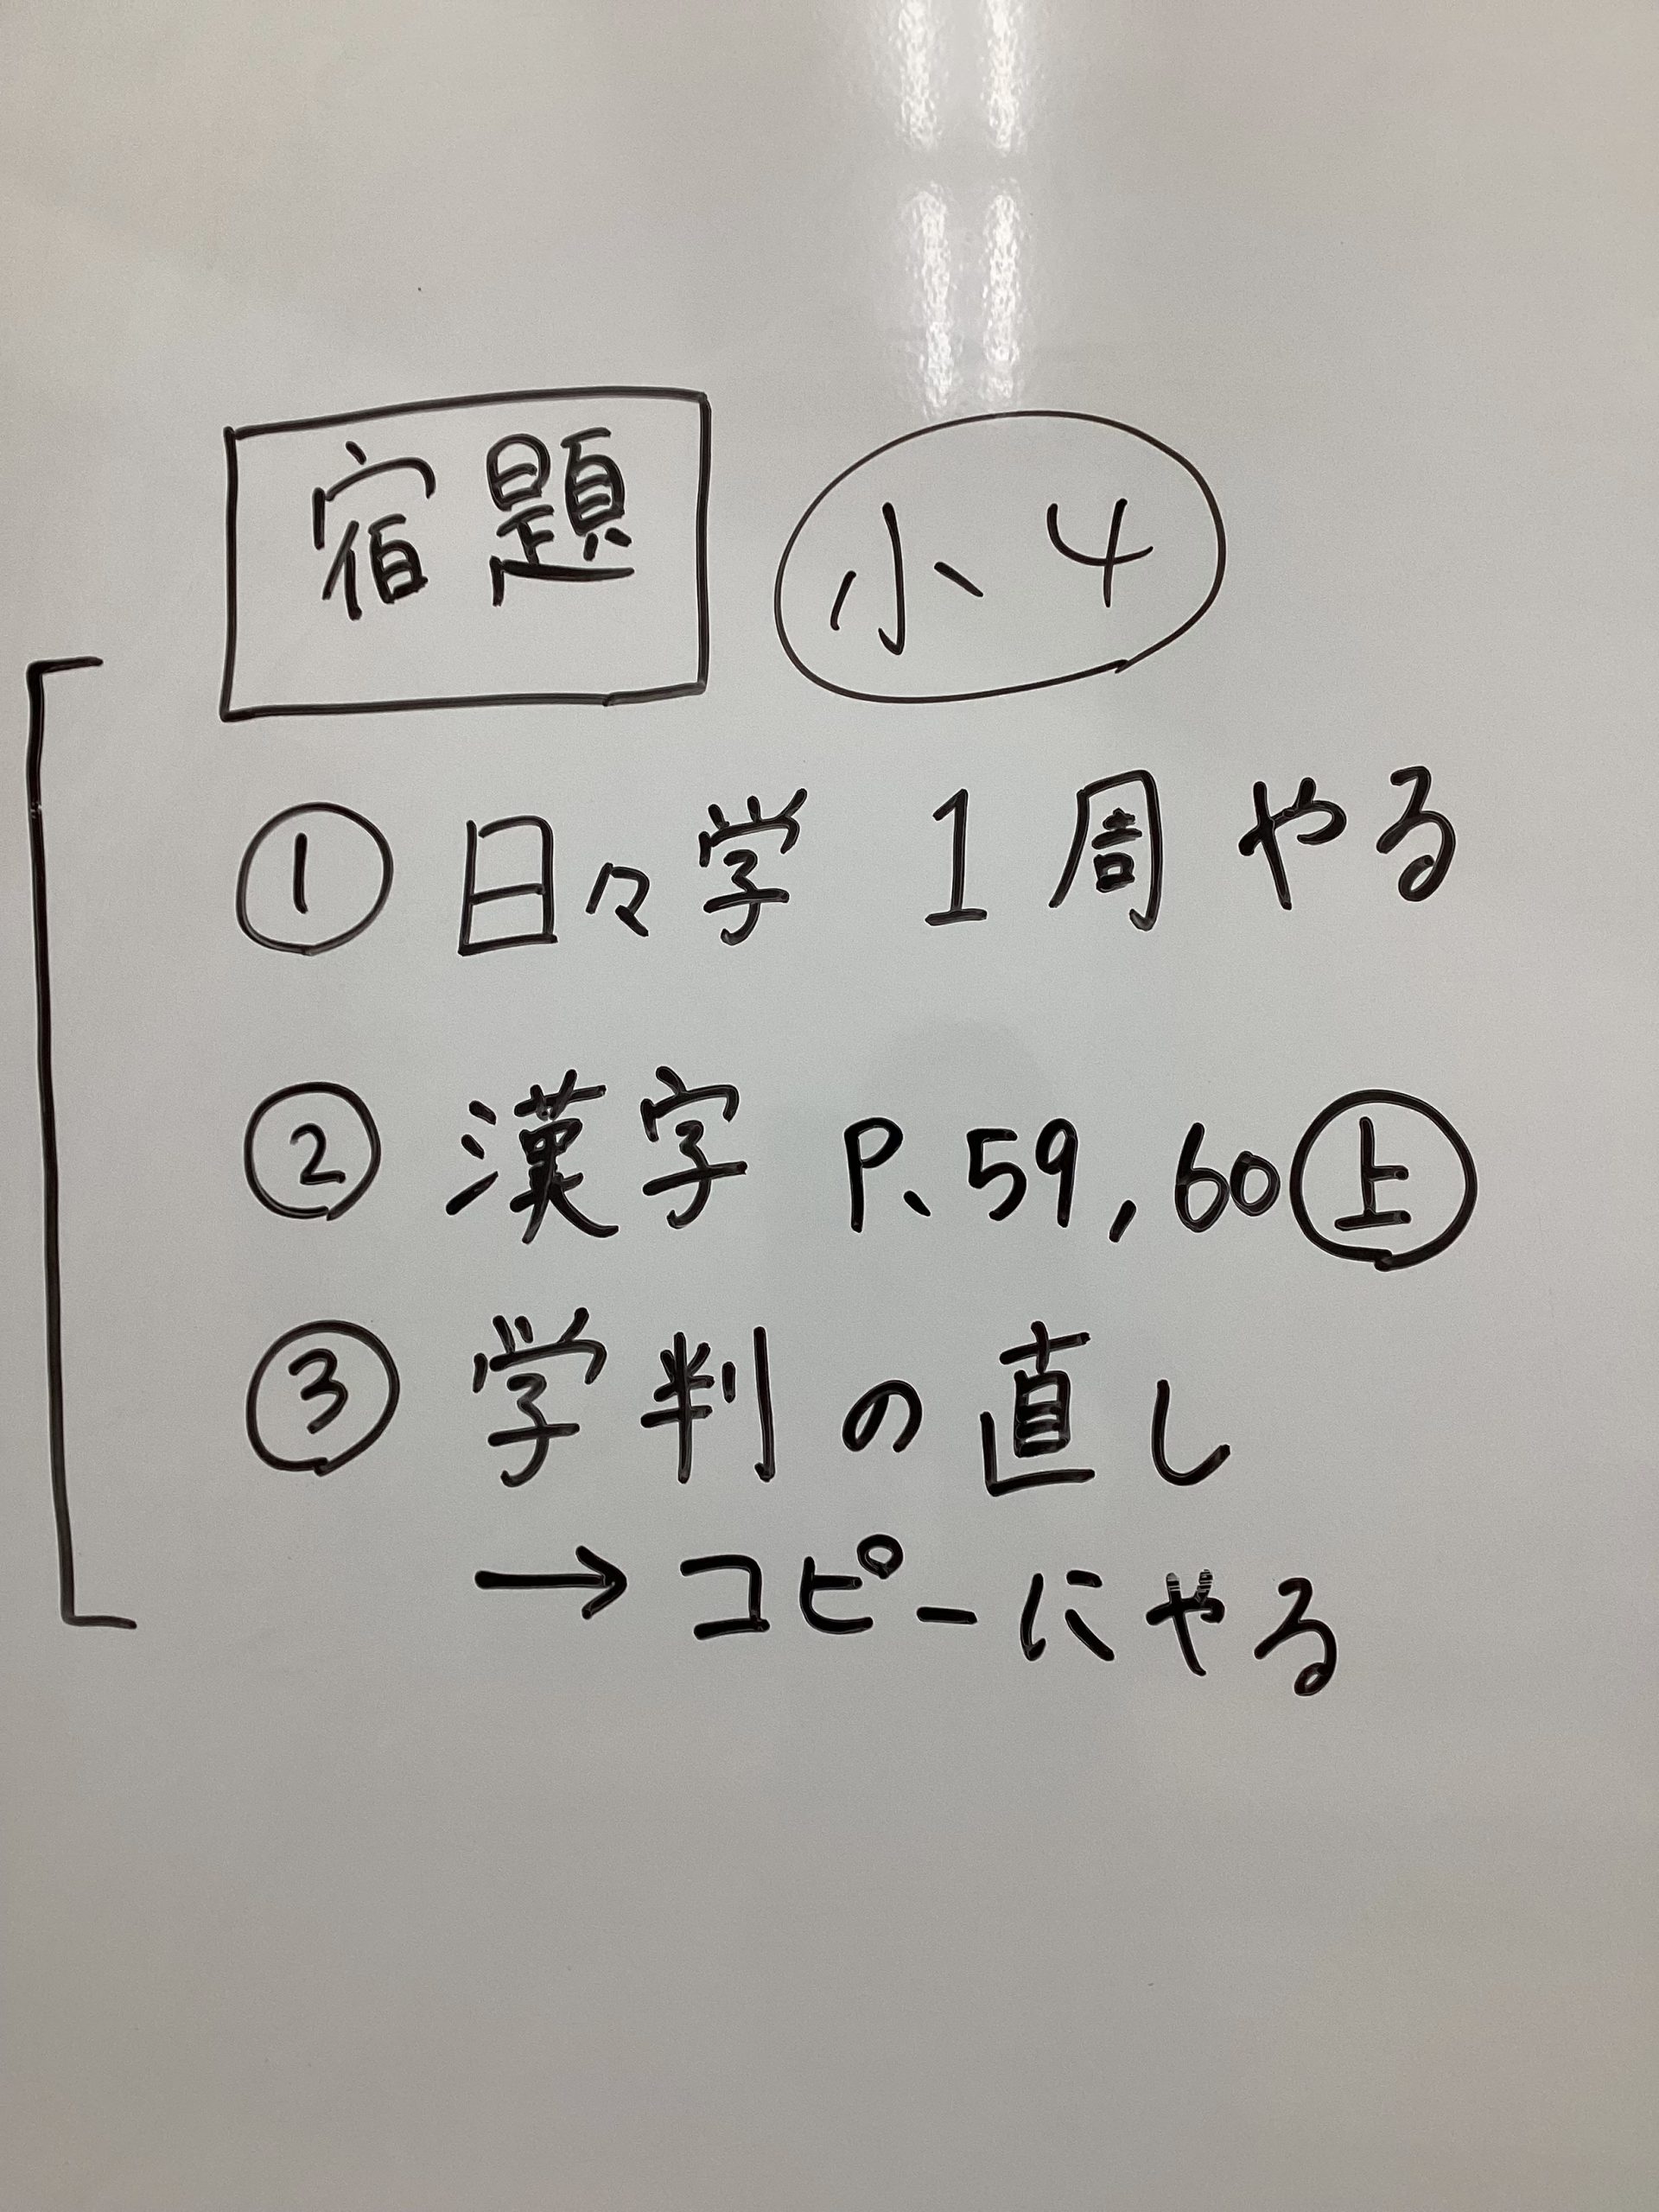 宿題 小4
① 日々学 1周やる
② 漢字 P.59,60㊤
③ 学判の直し
→コピーにやる